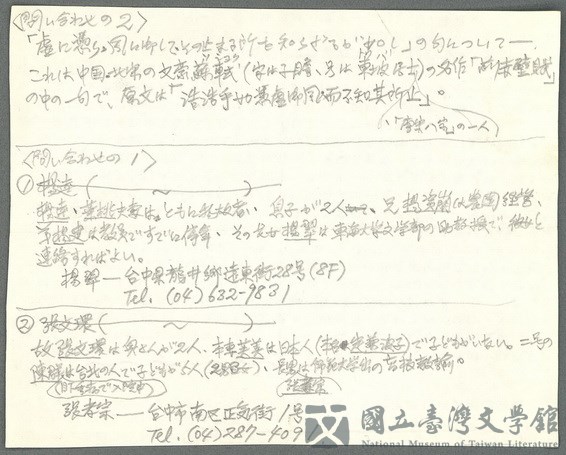 〈問い合わせの2〉
「虚に憑り風に御してその止まる所を知らざるが如し」の句について―.
これは、中国・北宋の文豪蘇軾(字は子瞻、号は東坡居士)の名作「前赤壁賦」
の中の一句で、原文は「浩浩乎如憑虚御風而不知其所止」。
「唐宋八家」の一人
〈問い合わせの1〉
① 楊逵(～)
楊逵、葉陶夫妻は、ともに 息子が2人 兄 楊資崩は農園経営、
弟楊建は教員ですでに停年、その 楊翠は東海大学文学部の で、彼女と
連絡すればよい。
楊翠―台中県龍井郷遠東街28号(8F)
Tel. (04) 632-9831
② 張文環(～)
故張文環は奥さんが2人. 本妻 は日本人( 定兼 )で子どもがいない。二号の
陳 は台北の人で子どもが5人( )、長男は師範大学 の 教
張孝宗―台中市南区正気街1号
Tel. (04) 287-409
國立臺灣文學館
National Museum of Taiwan Literature